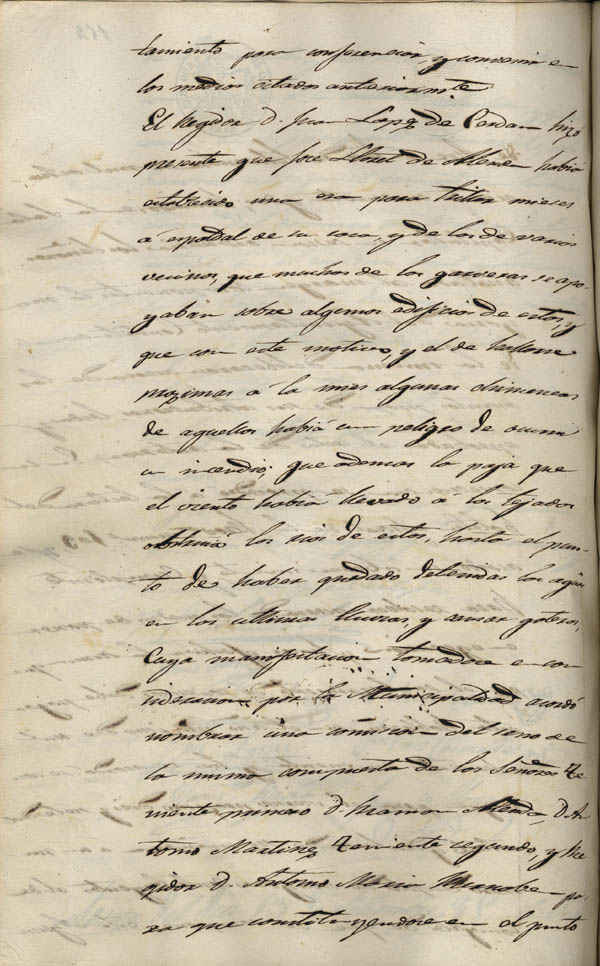 tamiento para conferenciar, y convenir en
los medios citados anteriormte
El Regidor d. Juan Lopz de Cerdan hizo
presente que José Lloret de habia
establecido una era para trillar mieses
á espaldal de su casa, y de las de varios
vecinos, que muchos de los garveras se apo-
yaban sobre algunos edificios de estos, y
que con este motivo, y el de hallarse
proximas á la mies algunas chimeneas
de aquellos habia un peligro de ocurrir
un incendio; que ademas la paja que
el viento habia llevado á los tejados
obstruia los rios de estos, hasta el pun-
to de haber quedado detenidas las aguas
en las ultimas lluvias, y causar goteras,
Cuya manifestacion tomandose en con
sideracion por la Municipalidad acordó
nombrar una comision del seno de
la misma compuesta de los Señores Te
niente primero d. Ramon D. An
tonio Martinez Teniente segundo, y Re
gidor D. Antonio Maria pa-
ra que constituyendose en el punto